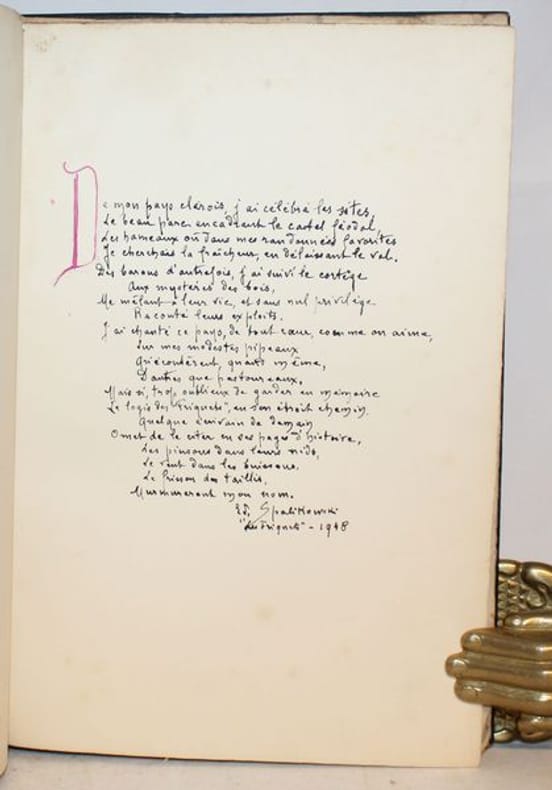 De mon pays clérois, j'ai célébré les sites,
Le beau parc encadrant le castel féodal,
Les hameaux où dans mes randonnées favorites
Je cherchais la fraîcheur, en délaissant le val.
Des barons d'autrefois, j'ai suivi le cortège
Aux mystères des bois,
Me mêlant à leur vie, et sans nul privilège
Raconté leurs exploits.
J'ai chanté ce pays, de tout cœur, comme on aime,
Sur mes modestes pipeaux
Qu'écoutèrent, quand même,
D'autres que pastoureaux.
Mais si, trop oublieux de garder en mémoire
Le logis des "Friquets", en son étroit chemin
Quelque écrivain de demain
Omet de le citer en ses pages d'histoire,
Les pinsons dans leurs nids,
Le vent dans les buissons,
Le frisson des taillis,
Murmureront mon nom.
Ed. Spalikowski
"Les Friquets" - 1948